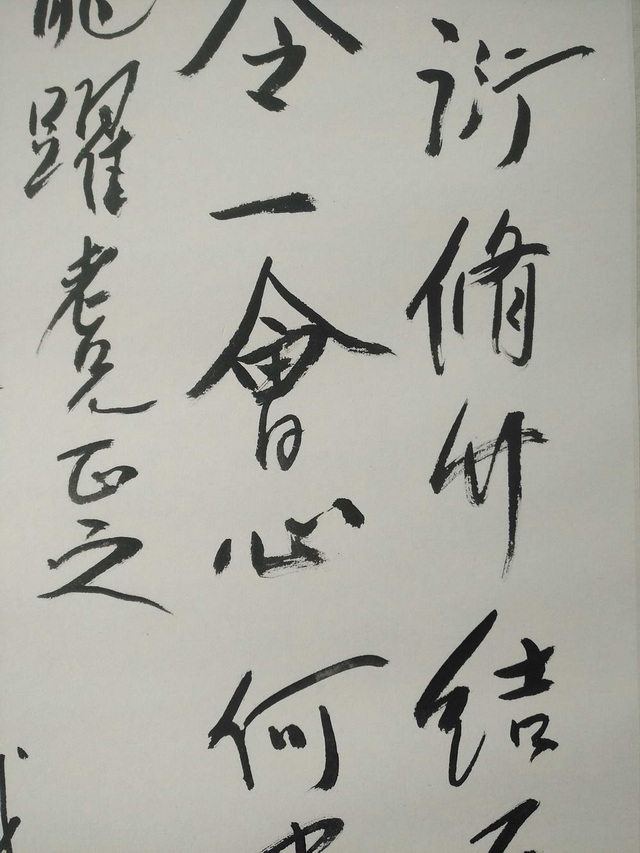 衍脩竹結
今一會心何
躍老兄正之